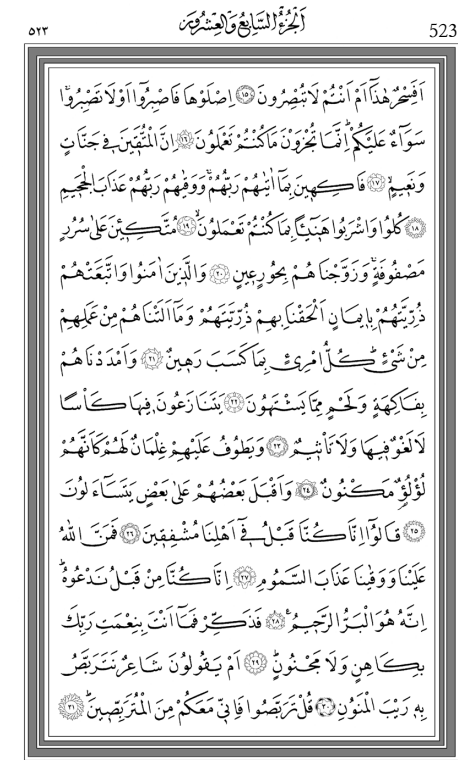 ٥٢٣ اَلْجُزْءُ السَّابِعُ وَالْعِشْرُونَ 523
اَفَسِحْرٌ هٰذَٓا اَمْ اَنْتُمْ لَا تُبْصِرُونَ ﴿١٥﴾ اِصْلَوْهَا فَاصْبِرُٓوا اَوْ لَا تَصْبِرُواۚ
سَوَٓاءٌ عَلَيْكُمْۜ اِنَّمَا تُجْزَوْنَ مَا كُنْتُمْ تَعْمَلُونَ ﴿١٦﴾ اِنَّ الْمُتَّق۪ينَ ف۪ي جَنَّاتٍ
وَنَع۪يمٍۙ ﴿١٧﴾ فَاكِه۪ينَ بِمَٓا اٰتٰيهُمْ رَبُّهُمْۚ وَوَقٰيهُمْ رَبُّهُمْ عَذَابَ الْجَح۪يمِ
﴿١٨﴾ كُلُوا وَاشْرَبُوا هَن۪ٓيـًٔا بِمَا كُنْتُمْ تَعْمَلُونَۙ ﴿١٩﴾ مُتَّكِـ۪ٔينَ عَلٰى سُرُرٍ
مَصْفُوفَةٍۚ وَزَوَّجْنَاهُمْ بِحُورٍ ع۪ينٍ ﴿٢٠﴾ وَالَّذ۪ينَ اٰمَنُوا وَاتَّبَعَتْهُمْ
ذُرِّيَّتُهُمْ بِا۪يمَانٍ اَلْحَقْنَا بِهِمْ ذُرِّيَّتَهُمْ وَمَٓا اَلَتْنَاهُمْ مِنْ عَمَلِهِمْ
مِنْ شَيْءٍۜ كُلُّ امْرِئٍ بِمَا كَسَبَ رَه۪ينٌ ﴿٢١﴾ وَاَمْدَدْنَاهُمْ
بِفَاكِهَةٍ وَلَحْمٍ مِمَّا يَشْتَهُونَ ﴿٢٢﴾ يَتَنَازَعُونَ ف۪يهَا كَأْسًا
لَا لَغْوٌ ف۪يهَا وَلَا تَأْث۪يمٌ ﴿٢٣﴾ وَيَطُوفُ عَلَيْهِمْ غِلْمَانٌ لَهُمْ كَاَنَّهُمْ
لُؤْلُؤٌ مَكْنُونٌ ﴿٢٤﴾ وَاَقْبَلَ بَعْضُهُمْ عَلٰى بَعْضٍ يَتَسَٓاءَلُونَ
﴿٢٥﴾ قَالُٓوا اِنَّا كُنَّا قَبْلُ ف۪ٓي اَهْلِنَا مُشْفِق۪ينَ ﴿٢٦﴾ فَمَنَّ اللّٰهُ
عَلَيْنَا وَوَقٰينَا عَذَابَ السَّمُومِ ﴿٢٧﴾ اِنَّا كُنَّا مِنْ قَبْلُ نَدْعُوهُۜ
اِنَّهُ هُوَ الْبَرُّ الرَّح۪يمُ۟ ﴿٢٨﴾ فَذَكِّرْ فَمَٓا اَنْتَ بِنِعْمَتِ رَبِّكَ
بِكَاهِنٍ وَلَا مَجْنُونٍۜ ﴿٢٩﴾ اَمْ يَقُولُونَ شَاعِرٌ نَتَرَبَّصُ
بِه۪ رَيْبَ الْمَنُونِ ﴿٣٠﴾ قُلْ تَرَبَّصُوا فَاِنّ۪ي مَعَكُمْ مِنَ الْمُتَرَبِّص۪ينَۜ ﴿٣١﴾